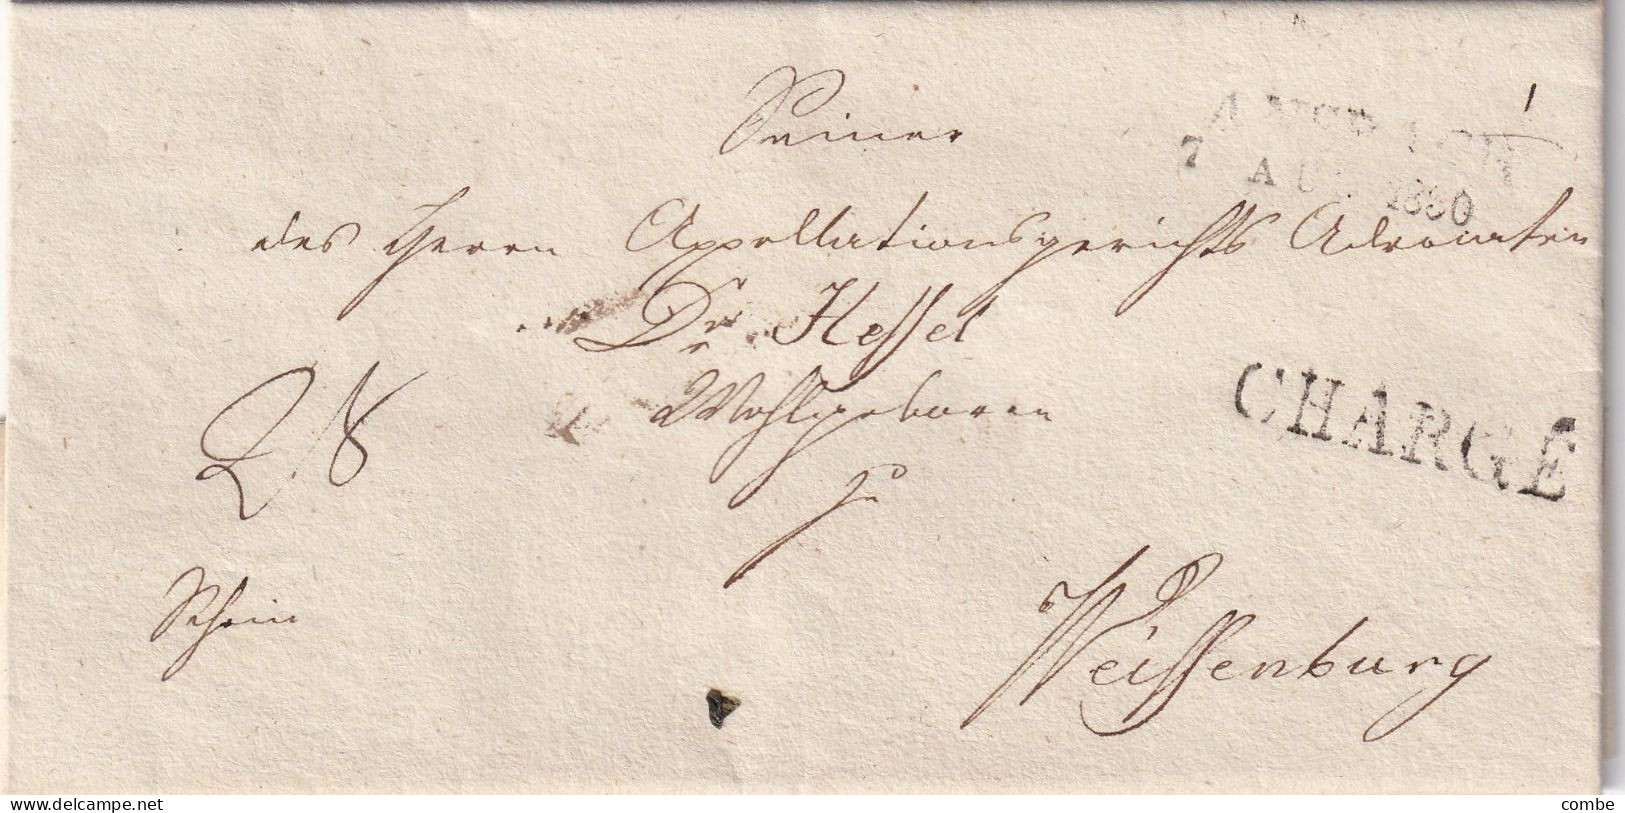 Seiner
7 AUG 1830
des Herrn Appellationsgerichts Advocaten
Dr Hessel
CHARGÉ
Wohlgeboren
zu
Schein
Weissenburg
www.delcampe.net
combe